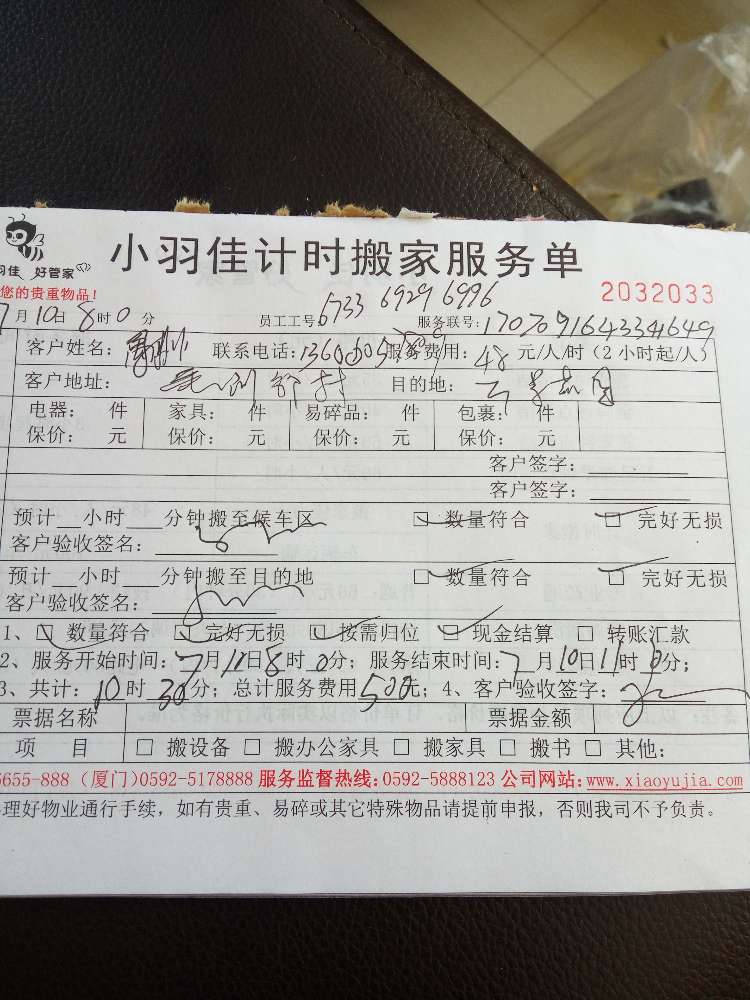 小羽佳计时搬家服务单
羽佳 好管家
您的贵重物品! 2032033
7月10日8时0分 员工工号6733 6929 6996 服务联号:170709164334649
客户姓名: 联系电话: 服务费用:48元/人/时(2小时起/人)
客户地址: 目的地:
电器: 件 家具: 件 易碎品: 件 包裹: 件
保价: 元 保价: 元 保价: 元 保价: 元
客户签字:
客户签字:
预计__小时___分钟搬至候车区 □数量符合 □完好无损
客户验收签名:
预计__小时___分钟搬至目的地 □数量符合 □完好无损
客户验收签名:
1、□数量符合 □完好无损 □按需归位 □现金结算 □转账汇款
2、服务开始时间:7月10日8时0分;服务结束时间:7月10日11时0分;
3、共计:10时30分;总计服务费用500元;4、客户验收签字:
票据名称 票据金额
项 目 □搬设备 □搬办公家具 □搬家具 □搬书 □其他:
5655-888 (厦门)0592-5178888 服务监督热线:0592-5888123 公司网站:www.xiaoyujia.com
理好物业通行手续,如有贵重、易碎或其它特殊物品请提前申报,否则我司不予负责。